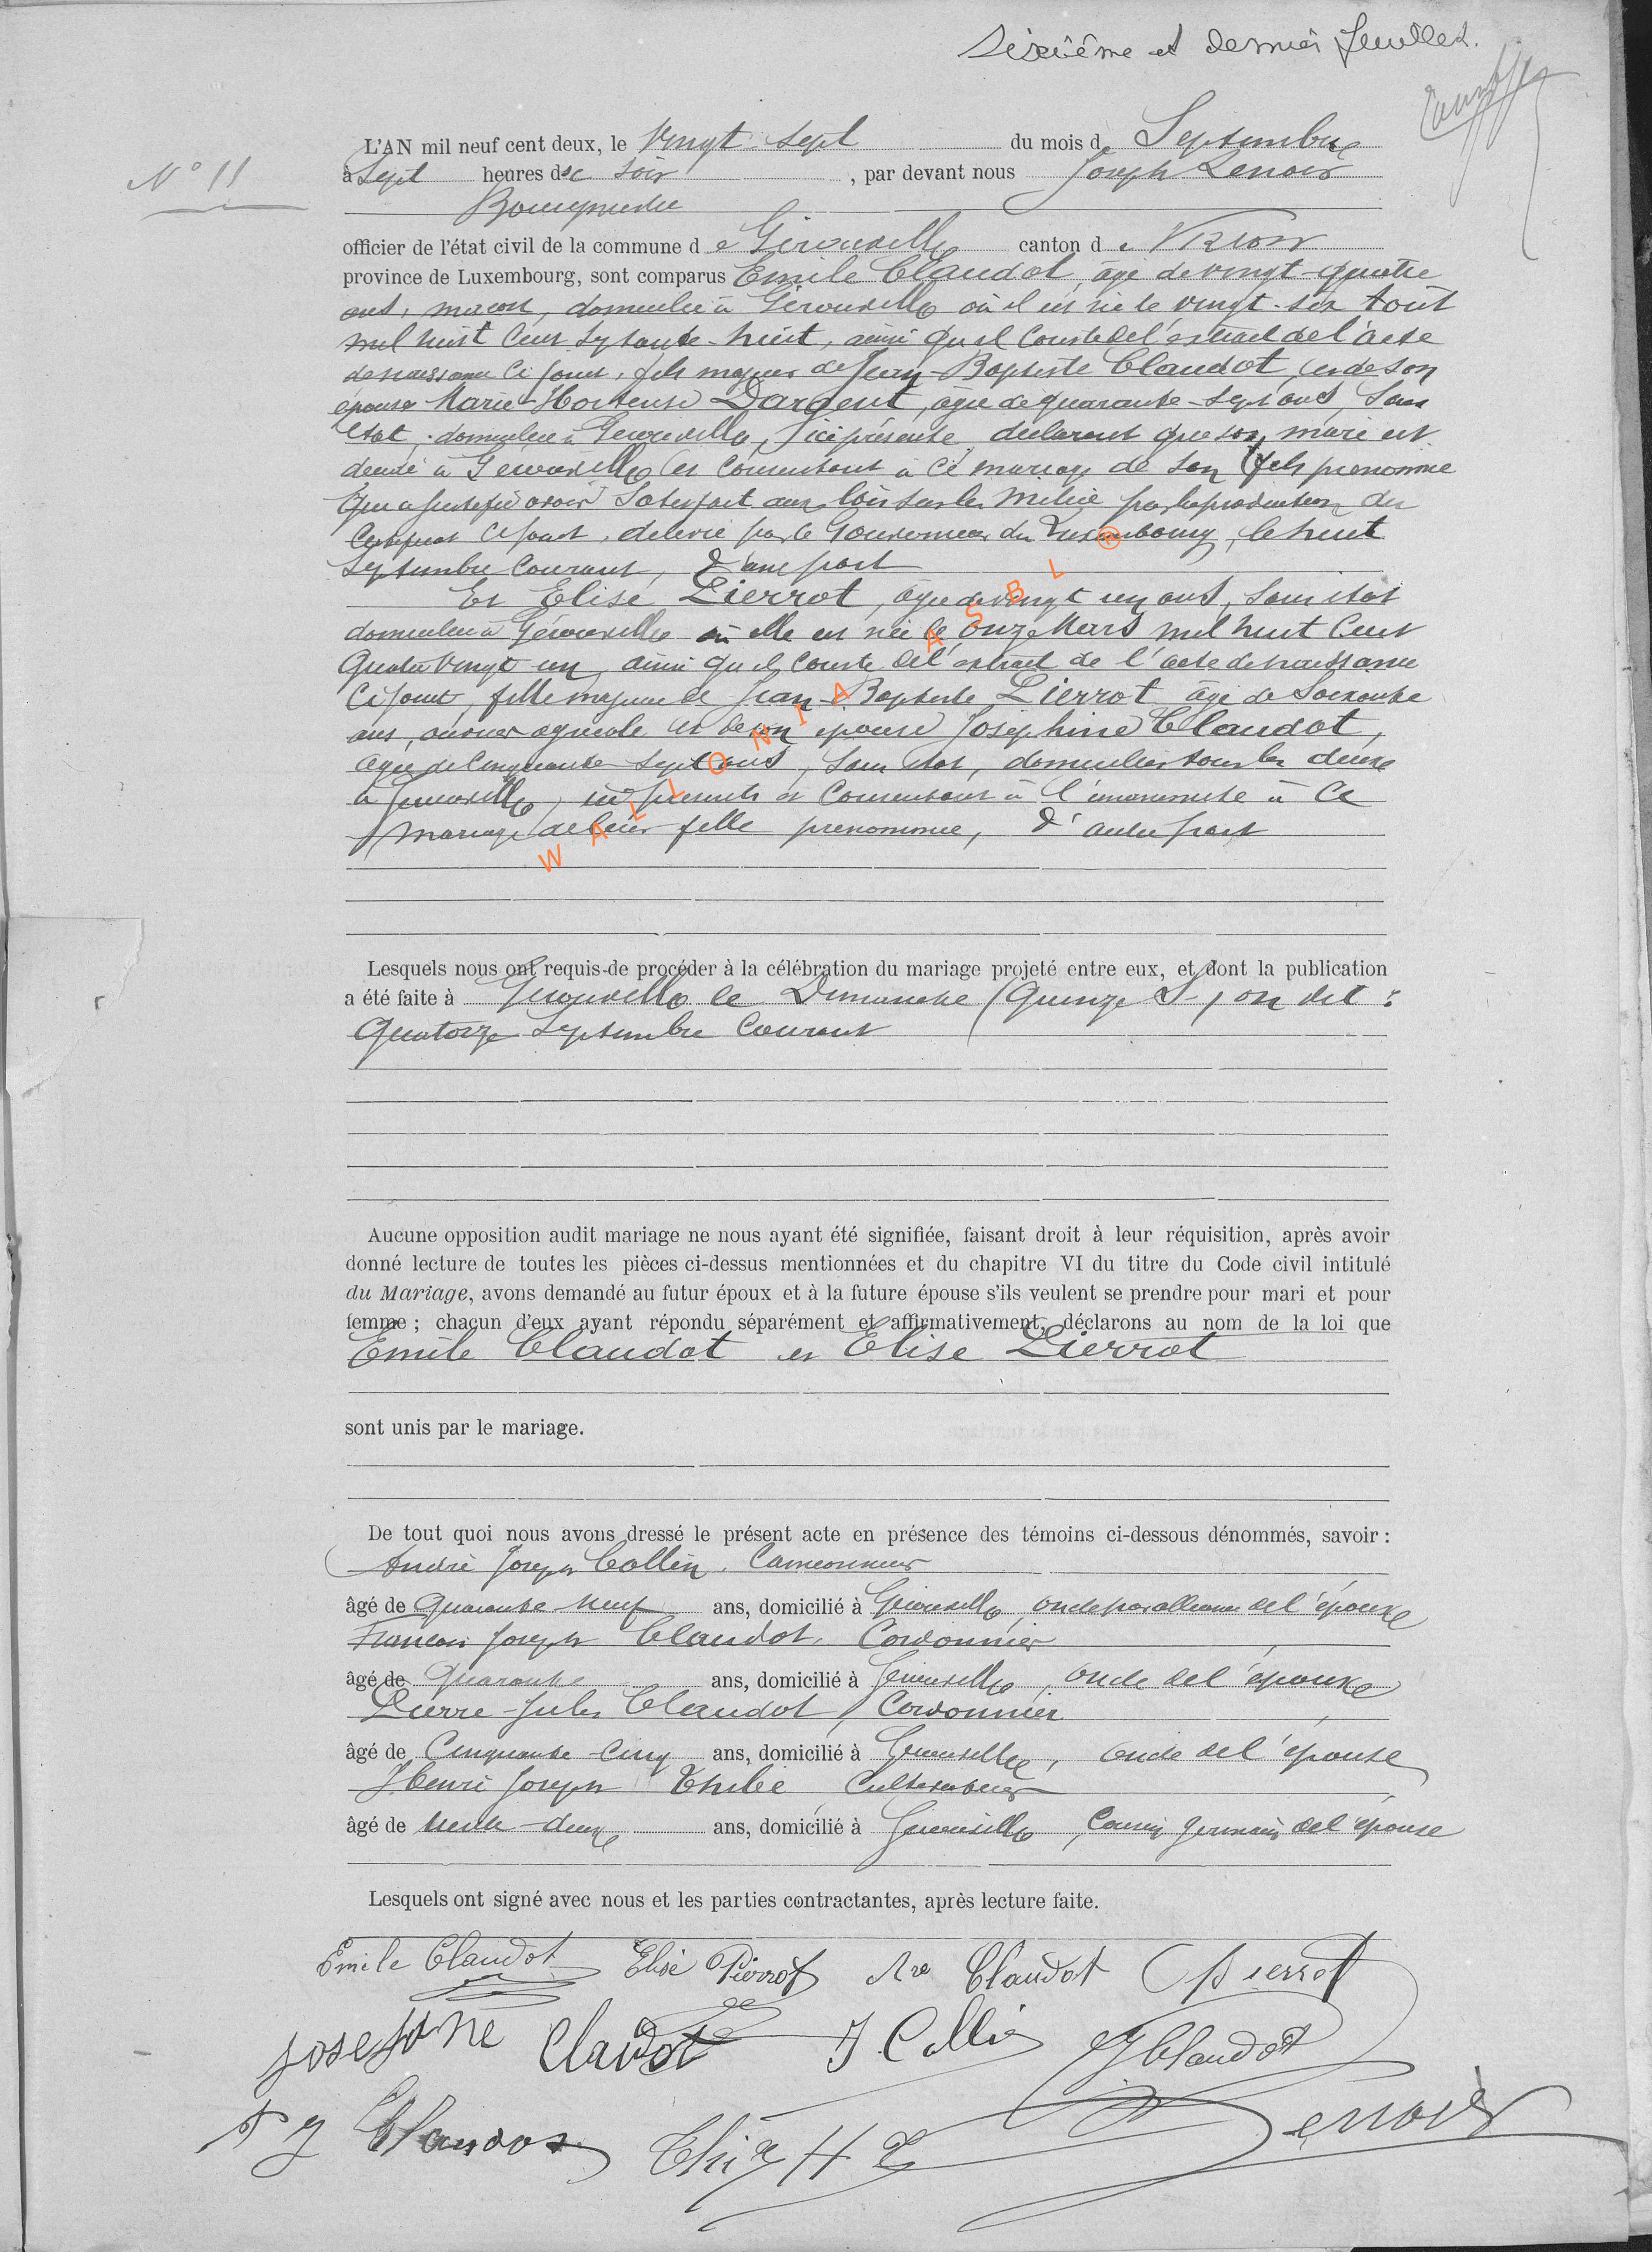 Sixième et dernier feuillet.
N° 11
L'AN mil neuf cent deux, le Vingt-sept du mois de Septembre
à Sept heures du soir, par devant nous Joseph Lenoir
Bourgmestre
officier de l'état civil de la commune de Gérouville canton de Virton
province de Luxembourg, sont comparus Emile Claudot, âgé de vingt-quatre
ans, maçon, domicilié à Gérouville où il est né le vingt-six Août
mil huit cent septante-huit, ainsi qu'il conste de l'extrait de l'acte
de naissance ci joint, fils majeur de Jean-Baptiste Claudot, et de son
épouse Marie-Hortense Dargent, âgée de quarante-sept ans, sans
état, domiciliée à Gérouville, ici présente, déclarant que son mari est
décédé à Gérouville et consentant à ce mariage de son fils prénommé
qui a justifié avoir satisfait aux lois sur la milice par la production du
certificat ci joint, délivré par le Gouverneur du Luxembourg, le huit
Septembre courant, d'une part
Et Elise Pierrot, âgée de vingt un ans, sans état
domiciliée à Gérouville où elle est née le onze Mars mil huit cent
quatre vingt un, ainsi qu'il conste de l'extrait de l'acte de naissance
ci joint, fille majeure de Jean-Baptiste Pierrot âgé de soixante
ans, ouvrier agricole et de son épouse Joséphine Claudot,
âgée de cinquante-sept ans, sans état, domiciliés tous les deux
à Gérouville, ici présents et consentant à l'
mariage de leur fille prénommée, d'autre part
WALLONIA ASBL ®
Lesquels nous ont requis de procéder à la célébration du mariage projeté entre eux, et dont la publication
a été faite à Gérouville le Dimanche (Quinze S-) on dit :
Quatorze Septembre Courant
Aucune opposition audit mariage ne nous ayant été signifiée, faisant droit à leur réquisition, après avoir
donné lecture de toutes les pièces ci-dessus mentionnées et du chapitre VI du titre du Code civil intitulé
du Mariage, avons demandé au futur époux et à la future épouse s'ils veulent se prendre pour mari et pour
femme ; chacun d'eux ayant répondu séparément et affirmativement, déclarons au nom de la loi que
Emile Claudot et Elise Pierrot
sont unis par le mariage.
De tout quoi nous avons dressé le présent acte en présence des témoins ci-dessous dénommés, savoir :
André Joseph Collin, Cantonnier
âgé de Quarante-neuf ans, domicilié à Gérouville, oncle par alliance de l'époux
François Joseph Claudot, Cordonnier
âgé de Quarante ans, domicilié à Gérouville, oncle de l'époux
Pierre-Jules Claudot, Cordonnier
âgé de Cinquante-cinq ans, domicilié à Gérouville, oncle de l'épouse
Henri Joseph Thiry, Cultivateur
âgé de trente-deux ans, domicilié à Gérouville, Cousin germain de l'épouse
Lesquels ont signé avec nous et les parties contractantes, après lecture faite.
Emile Claudot Elise Pierrot Claudot Pierrot
Josephine Claudot J. Collin J Claudot
P J Claudot Thiry H J Lenoir